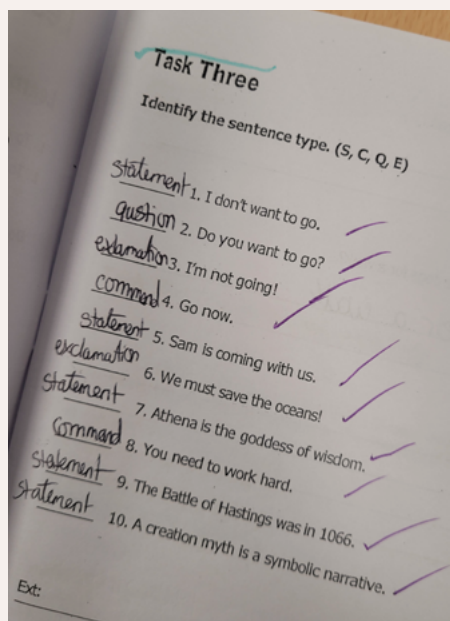 Task Three
Identify the sentence type. (S, C, Q, E)
statement 1. I don't want to go.
qustion 2. Do you want to go?
exlamation 3. I'm not going!
commond 4. Go now.
statement 5. Sam is coming with us.
exclamation 6. We must save the oceans!
statement 7. Athena is the goddess of wisdom.
command 8. You need to work hard.
statement 9. The Battle of Hastings was in 1066.
statement 10. A creation myth is a symbolic narrative.
Ext: